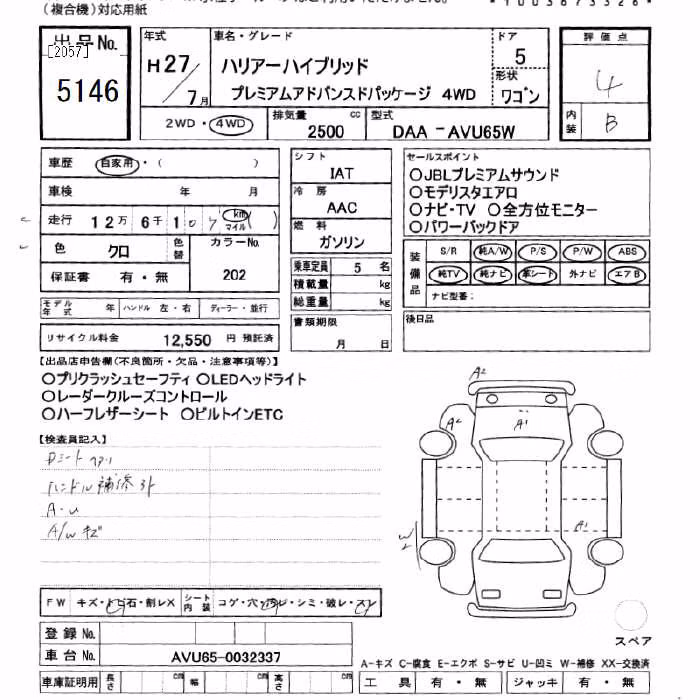 (複合機)対応用紙
*1003673326*
出品No.
[2057]
5146
年式
H27/7月
車名・グレード
ハリアーハイブリッド
プレミアムアドバンスドパッケージ 4WD
ドア
5
形状
ワゴン
評価点
4
内装
B
2WD・4WD
排気量
2500 cc
型式
DAA-AVU65W
車歴 自家用・( )
車検 年 月
走行 12万 6千 1 km マイル ( )
色 クロ 色替
カラーNo. 202
保証書 有・無
モデル年式 年 ハンドル 左・右 ディーラー・並行
リサイクル料金 12,550 円 預託済
シフト
IAT
冷房
AAC
燃料
ガソリン
乗車定員 5 名
積載量 kg
総重量 kg
書類期限
月 日
セールスポイント
○JBLプレミアムサウンド
○モデリスタエアロ
○ナビ・TV ○全方位モニター
○パワーバックドア
装備品
S/R 純A/W P/S P/W ABS
純TV 純ナビ 革シート 外ナビ エアB
ナビ型番:
後日品
【出品店申告欄(不良箇所・欠品・注意事項等)】
○プリクラッシュセーフティ ○LEDヘッドライト
○レーダークルーズコントロール
○ハーフレザーシート ○ビルトインETC
【検査員記入】
Dシート
ハンドル補修
A・U
A/W キズ
A2
A2
A1
A1
W2
FW キズ・トビ石・割レX シート内装 コゲ・穴・汚レ・シミ・破レ・スレ
登録No.
車台No. AVU65-0032337
車庫証明用 長さ cm 幅 cm 高さ cm
スペア
A-キズ C-腐食 E-エクボ S-サビ U-凹ミ W-補修 XX-交換済
工具 有・無 ジャッキ 有・無